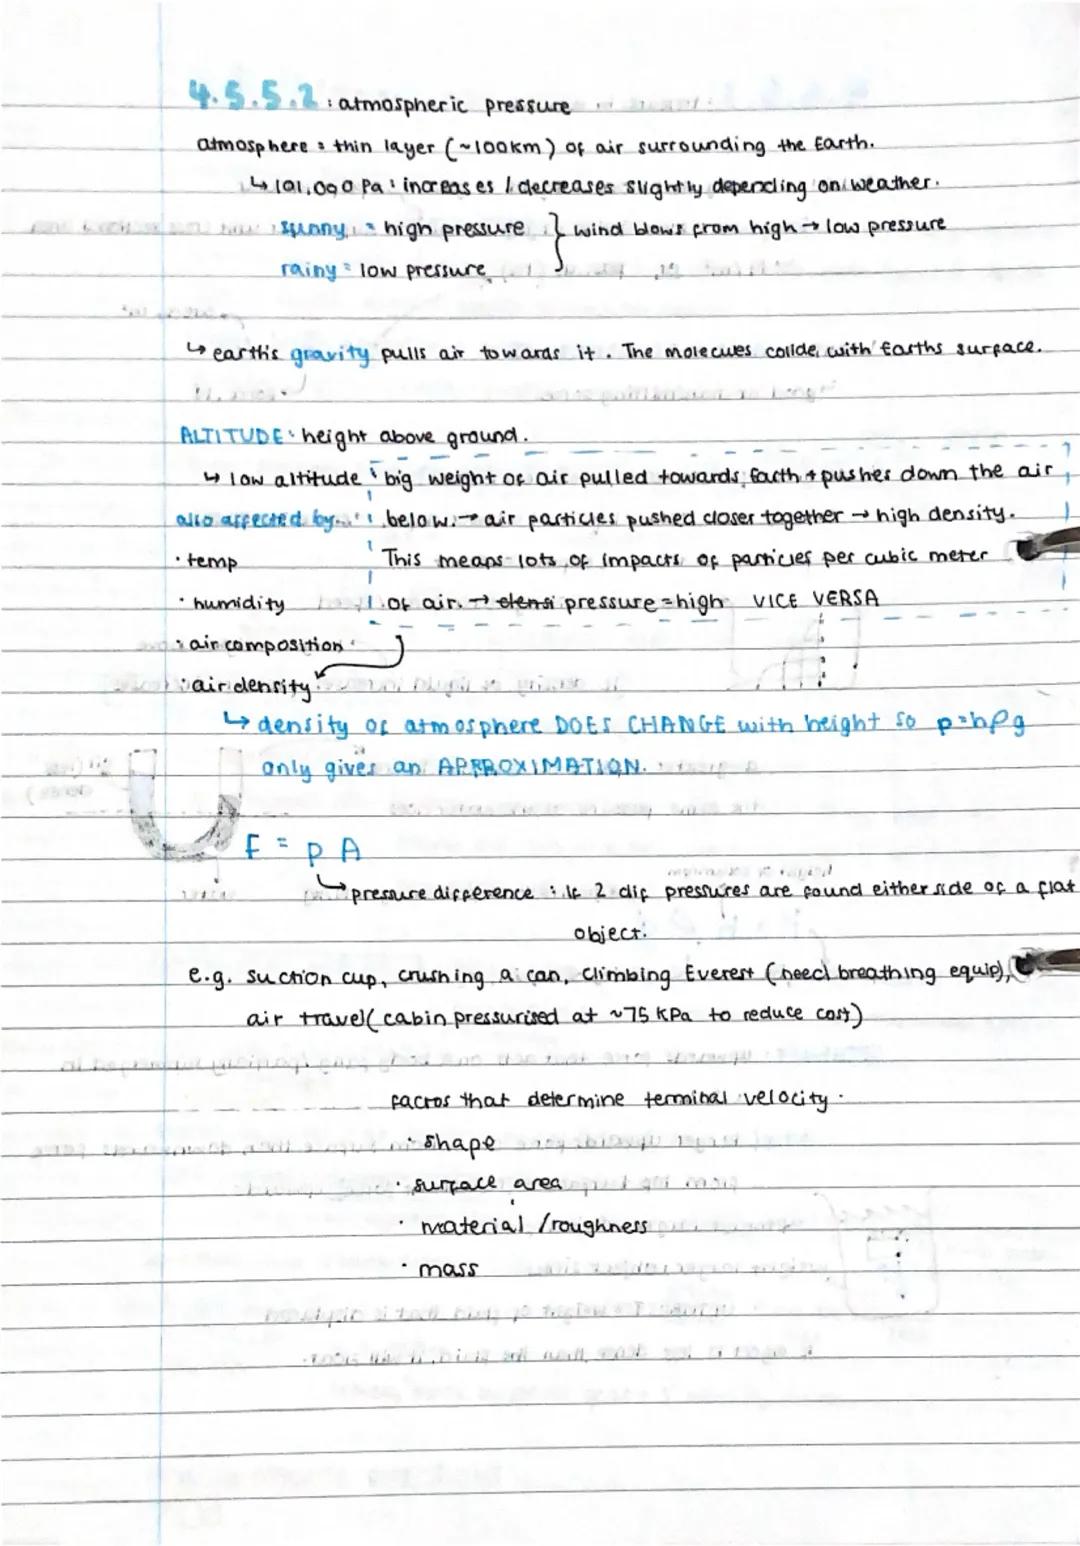 4.5.5.2 : atmospheric pressure
atmosphere : thin layer (~100km) of air surrounding the Earth.
↳ 101,000 Pa : increases / decreases slightly depending on weather.
sunny = high pressure } wind blows from high → low pressure
rainy = low pressure
↳ earth's gravity pulls air towards it. The molecules collide with Earths surface.
ALTITUDE : height above ground.
↳ low altitude : big weight of air pulled towards Earth + pushes down the air
also affected by... below. → air particles pushed closer together → high density.
· temp This means lots of impacts of particles per cubic meter
· humidity of air. → densi pressure = high VICE VERSA
· air composition
· air density
↳ density of atmosphere DOES CHANGE with height so p=hρg
only gives an APPROXIMATION.
F = p A
↳ pressure difference : if 2 dif pressures are found either side of a flat
object.
e.g. suction cup, crushing a can, climbing Everest (need breathing equip),
air travel (cabin pressurised at ~75 KPa to reduce cost)
factros that determine terminal velocity .
· shape
· surface area
· material / roughness
· mass